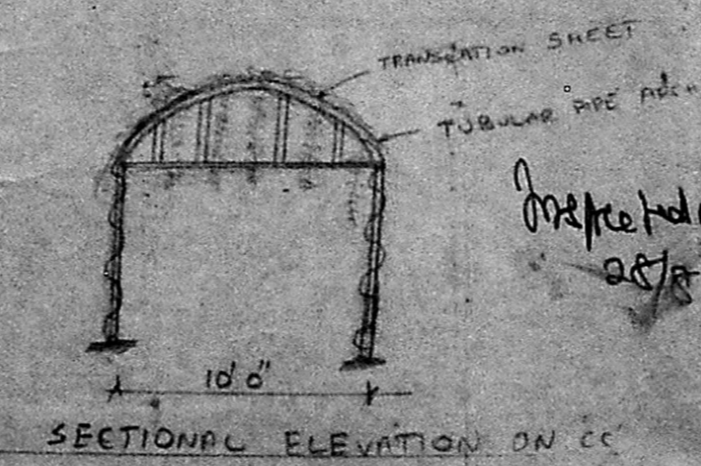 TRANSLATION SHEET
TUBULAR PIPE ARCH
Inspected
28/8
10' 0"
SECTIONAL ELEVATION ON CC